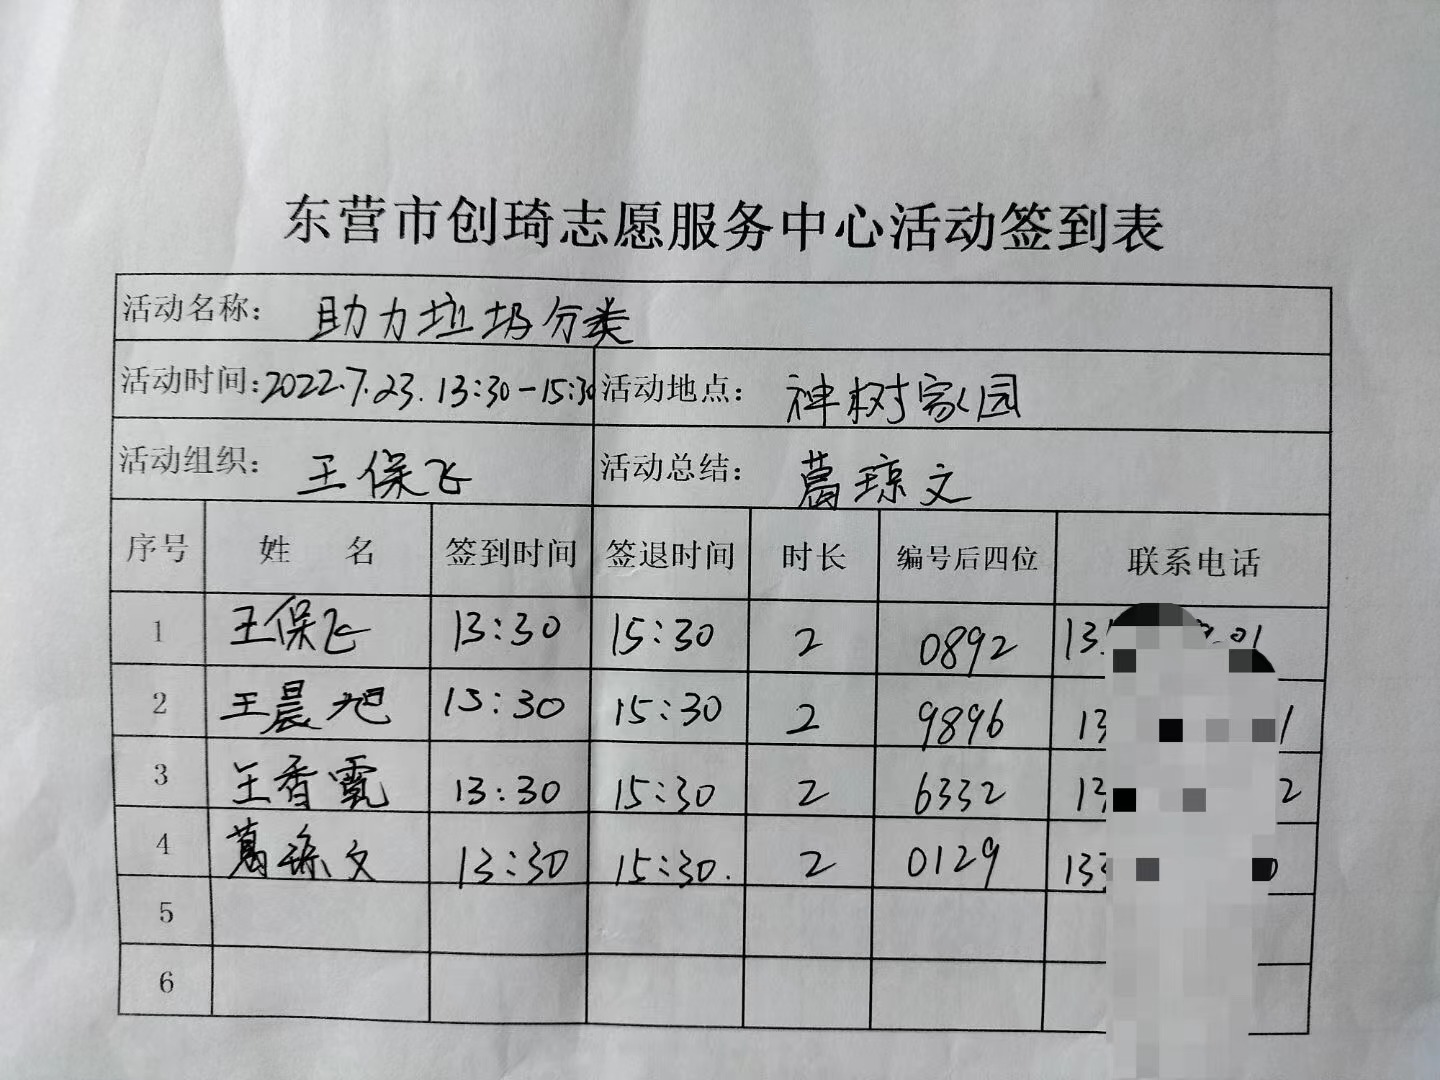 东营市创琦志愿服务中心活动签到表
活动名称： 助力垃圾分类
活动时间：2022.7.23. 13:30-15:30 活动地点： 神树家园
活动组织： 王保飞 活动总结： 葛琼文
序号 姓 名 签到时间 签退时间 时长 编号后四位 联系电话
1 王保飞 13:30 15:30 2 0892 13
2 王晨旭 13:30 15:30 2 9896 13
3 王香霓 13:30 15:30 2 6332 13 2
4 葛琼文 13:30 15:30. 2 0129 13
5
6